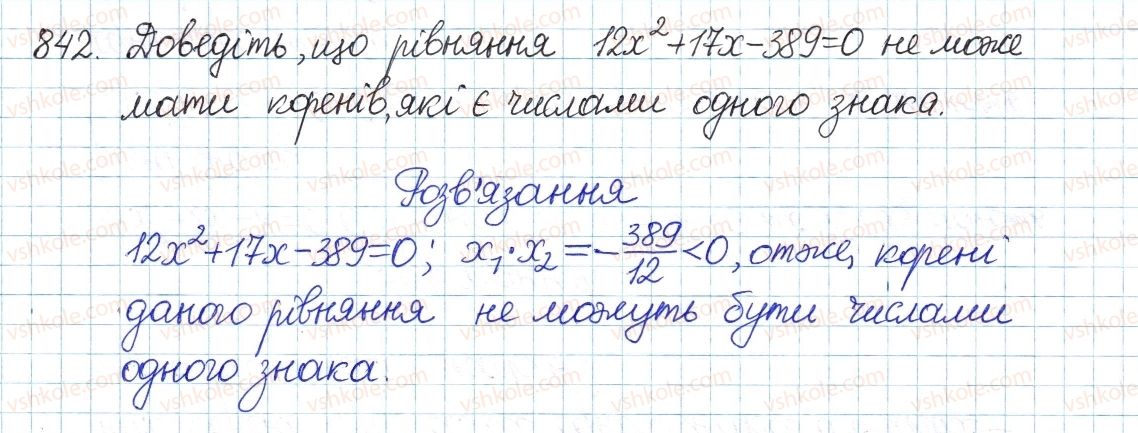 842. Доведіть, що рівняння 12x²+17x-389=0 не може
мати коренів, які є числами одного знака.
Розв'язання
12x²+17x-389=0; x₁·x₂=-389/12<0, отже, корені
даного рівняння не можуть бути числами
одного знака.